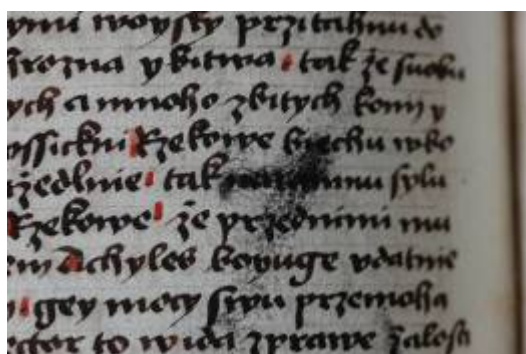 ymi woysky przitahnu do
hrozna y bitwa tak že
ych a mnoho zbitych kony y
Rzekowe biechu wko
tak sylu
Rzekowe že przednimi mu
em Achyles boyuge vdatnie
gey moczy swu przemoha
ector to wida zprawe žalosti